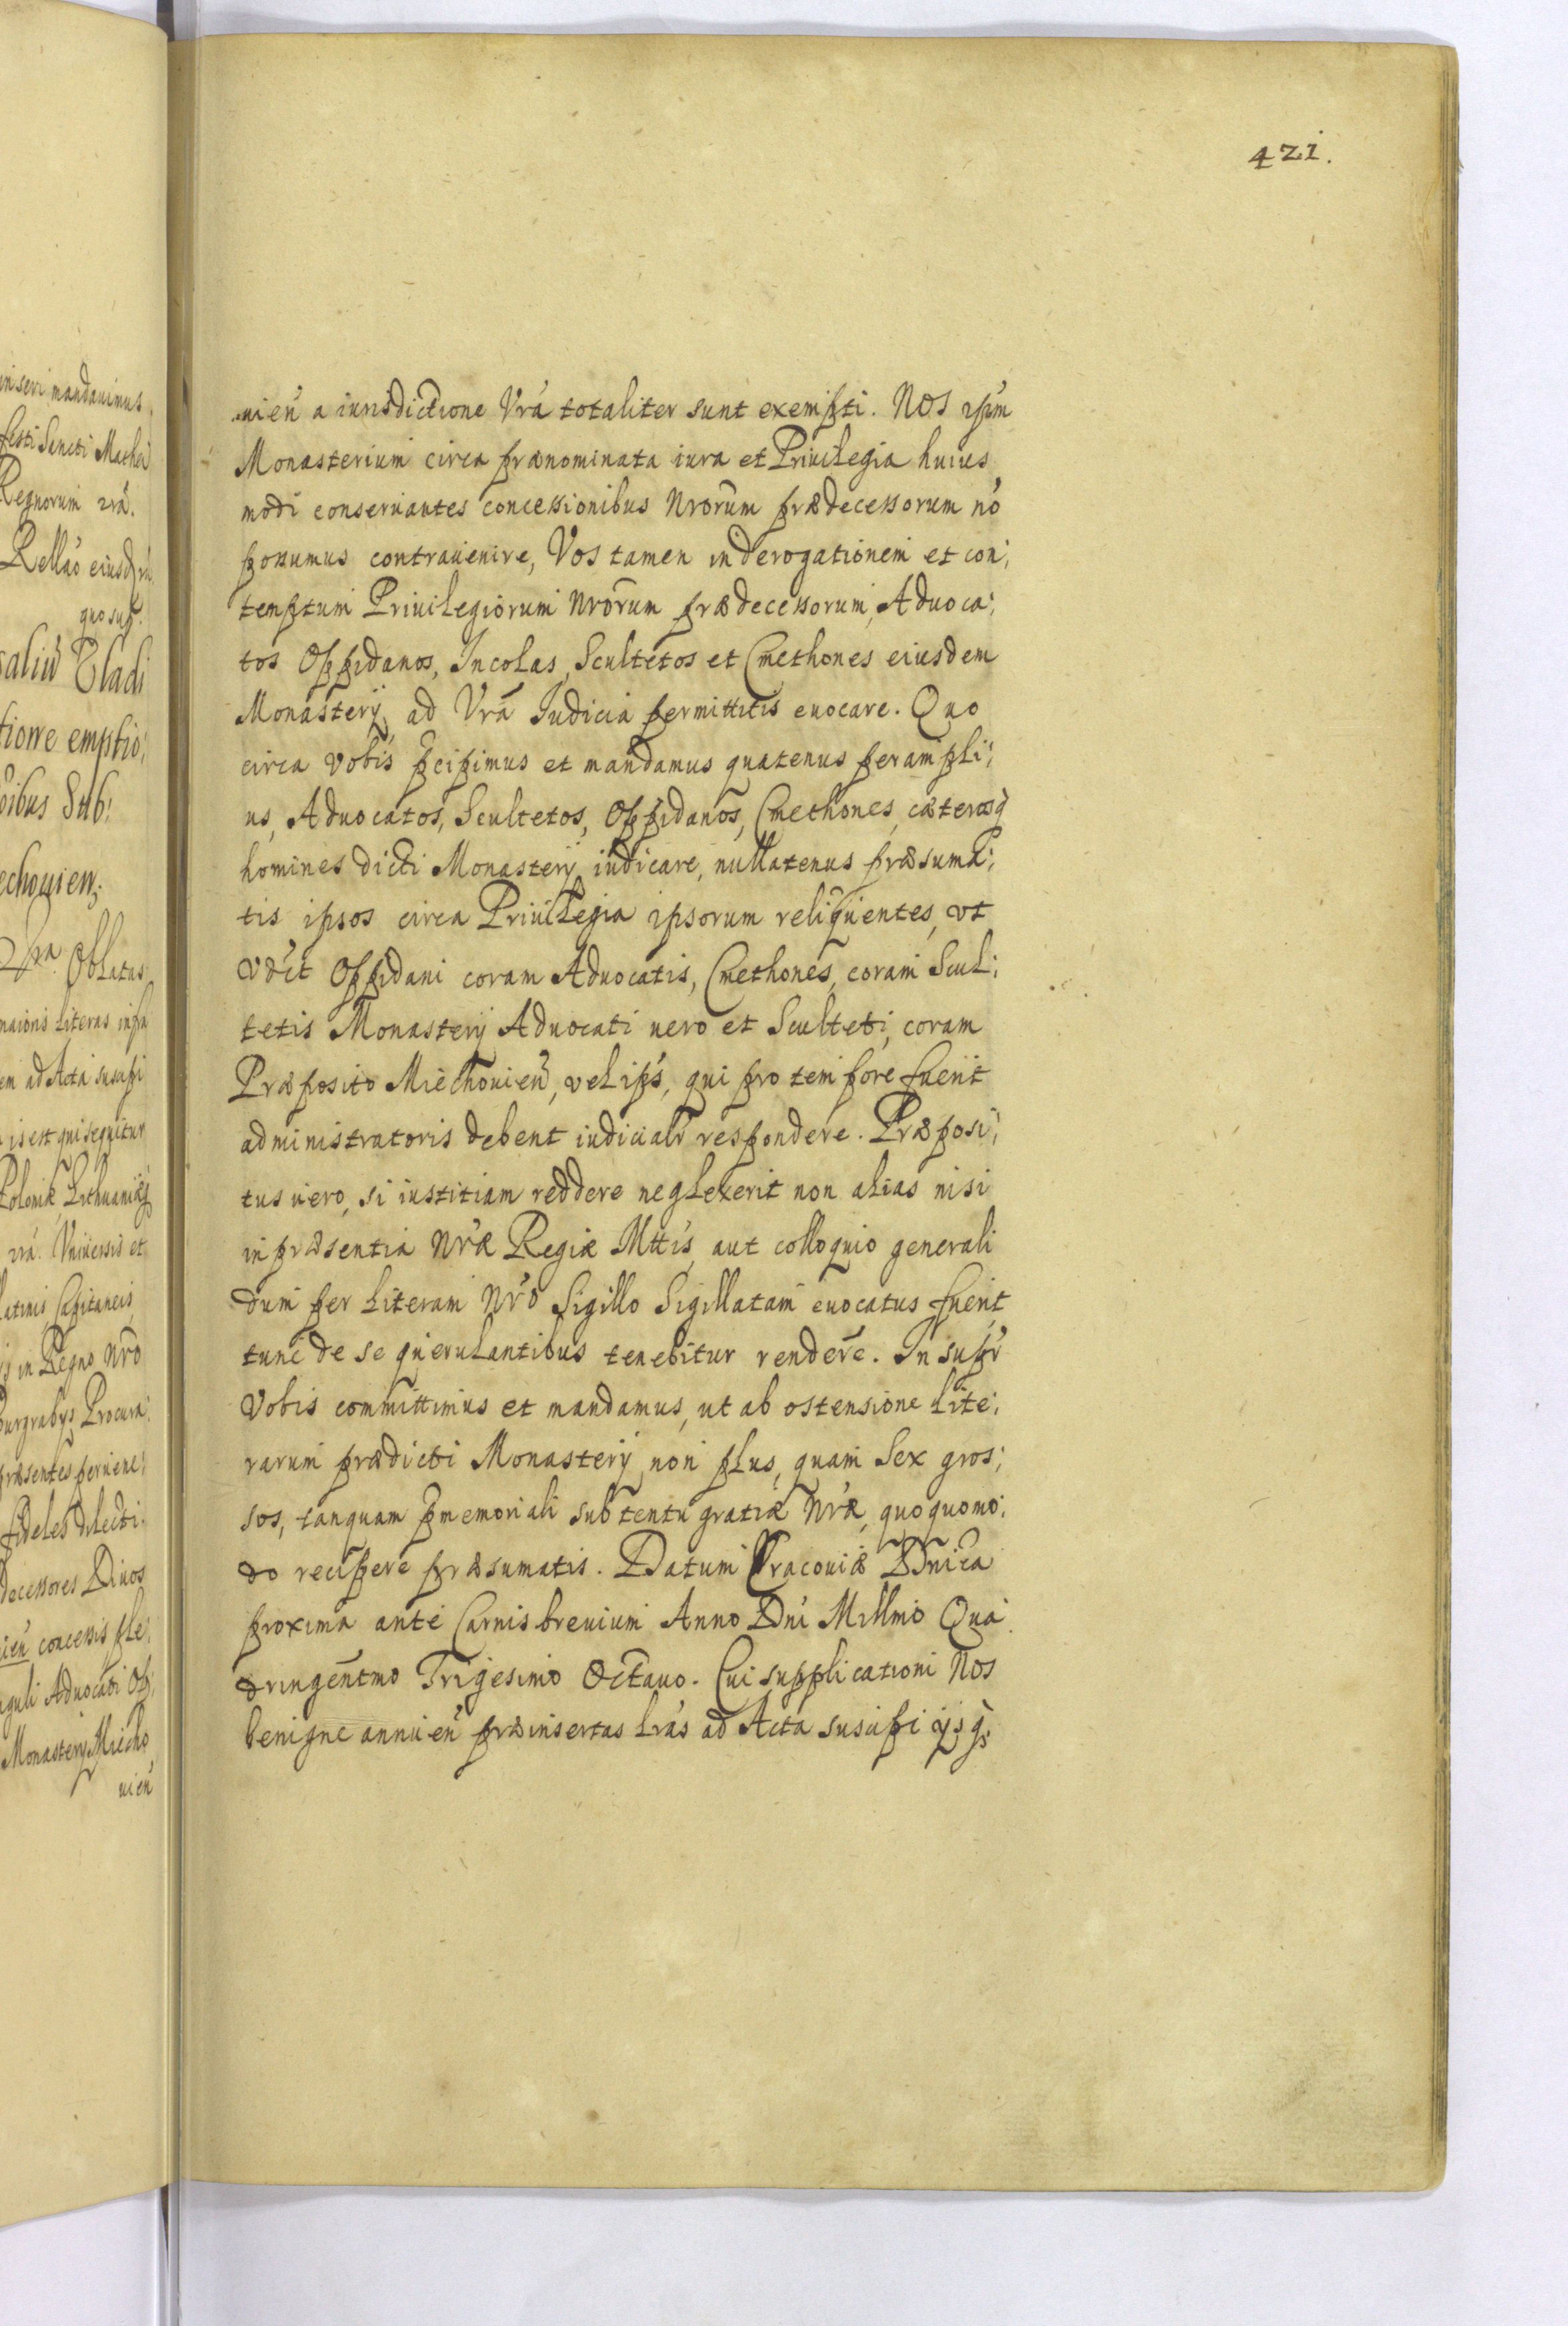 421.
uien̄ a iurisdictione Vrā totaliter sunt exempti. Nos ipm̄
Monasterium circa prænominata iura et Priuilegia huius
modi conseruantes concessionibus Nrorūm prædecessorum nō
possumus contrauenire, Vos tamen in derogationem et con:
temptum Priuilegiorum Nrorūm prædecessorum, Aduoca:
tos Oppidanos, Incolas, Scultetos et Cmethones eiusdem
Monasterÿ ad Vrā Iudicia permittitis euocare. Quo
circa vobis p̄cipimus et mandamus quatenus perampli:
us, Aduocatos, Scultetos, Oppidanos, Cmethones, cæterosq̀
homines dicti Monasterÿ iudicare, nullatenus præsuma:
tis ipsos circa Priuilegia ipsorum reliquentes, vt
vdēt Oppidani coram Aduocatis, Cmethones, coram Scul:
tetis Monasterÿ Aduocati uero et Sculteti, coram
Præposito Miechouien̄, vel ips̄, qui pro tempore fuerit
administratoris debent iudicialr̄ respondere. Præposi:
tus uero, si iustitiam reddere neglexerit non alias nisi
in præsentia Nr̄æ Regiæ Mttis, aut colloquio generali
dum per literam Nr̄o Sigillo Sigillatam euocatus fuerit
tunc de se querulantibus tenebitur rendere. Insupr̄
Vobis committimus et mandamus, ut ab ostensione lite:
rarum prædicti Monasterÿ non plus, quam Sex gros:
sos, tanquam p̄memoriali sub tentu gratiæ Nr̄æ, quoquomo:
do recipere præsumatis. Datum Cracouiæ Dn̄ica
proxima ante Carnisbreuium Anno Dn̄i Millm̄o Qua
dringentmo Trigesimo Octauo. Cui supplicationi Nos
benigne annuen̄ præinsertas lrās ad Acta suscipi ijsq̀;
inseri mandauimus.
festi Sancti Mathei
Regnorum vrā.
Rellāo eiusd
quo sup.
Tladi
emptio:
Sub:
echouien:
Oblatas
maioris Literas infra
em ad Acta suscipi
is est qui sequitur
Poloniæ, Lithuaniæq
vrā. Vniuersis et
latinis, Capitaneis
in Regno Nrō
burgrabÿs, Procura:
præsentes peruene:
fideles dilecti.
decessores Diuos
uien̄ concessis ple:
nguli Aduocati Op:
Monasterÿ Miecho
uien̄